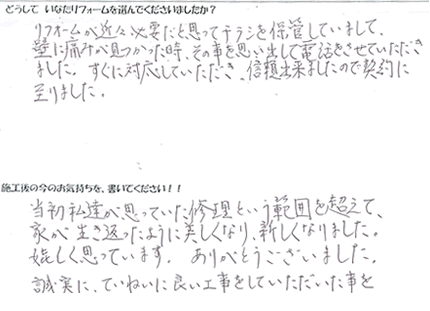 どうして いなたリフォームを選んでくださいましたか？
リフォームが近々必要だと思ってチラシを保管していまして、
壁に痛みが見つかった時、その事を思い出して電話をさせていただき
ました。すぐに対応していただき、信頼出来ましたので契約に
至りました。
施工後の今のお気持ちを、書いてください！！
当初私達が思っていた修理という範囲を超えて、
家が生き返ったように美しくなり、新しくなりました。
嬉しく思っています。ありがとうございました。
誠実に、ていねいに良い工事をしていただいた事を